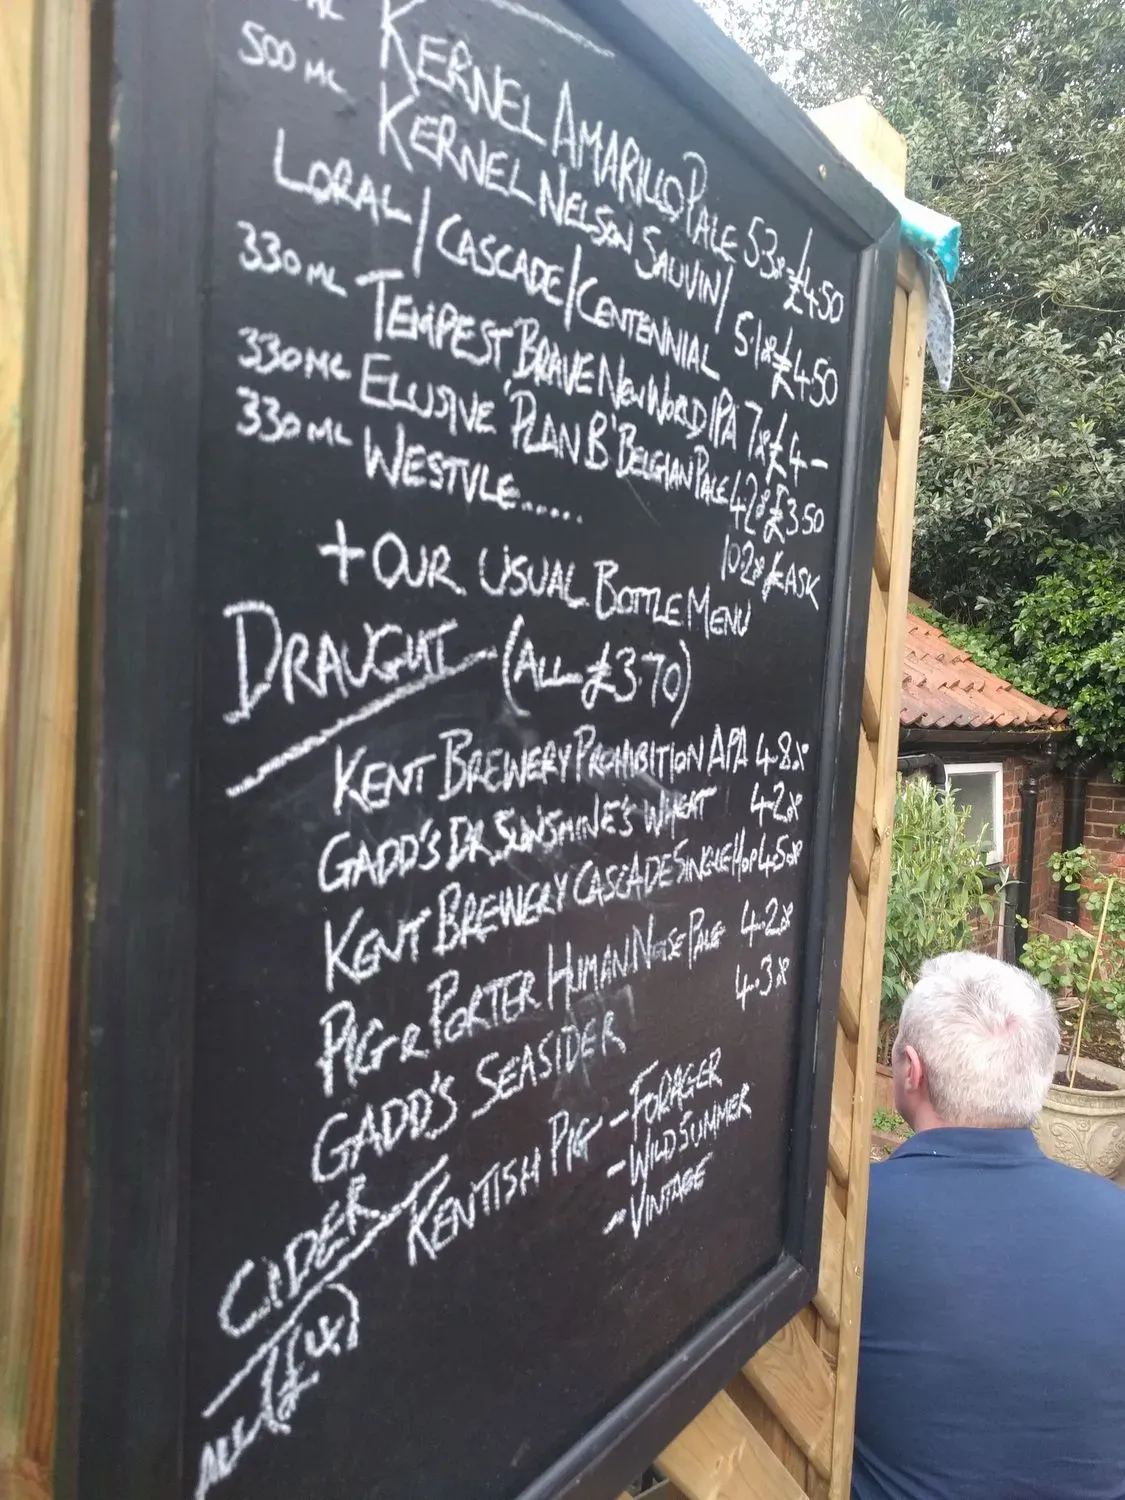 KERNEL AMARILLO PALE 5.3% £4.50
500ML KERNEL NELSON SAUVIN/
LORAL/CASCADE/CENTENNIAL 5.1% £4.50
330ML TEMPEST 'BRAVE NEW WORLD IPA 7% £4-
330ML ELUSIVE 'PLAN B' BELGIAN PALE 4.2% £3.50
330ML WESTVLE...... 10.2% £ASK
+ OUR USUAL BOTTLE MENU
DRAUGHT - (ALL £3.70)
KENT BREWERY PROHIBITION APA 4.8%
GADD'S DR SUNSHINE'S WHEAT 4.2%
KENT BREWERY CASCADE SINGLE HOP 4.5%
PIG & PORTER HUMAN NOISE PALE 4.2%
GADD'S SEASIDER 4.3%
CIDER KENTISH PIG - FORAGER
- WILD SUMMER
- VINTAGE
ALL (£4)